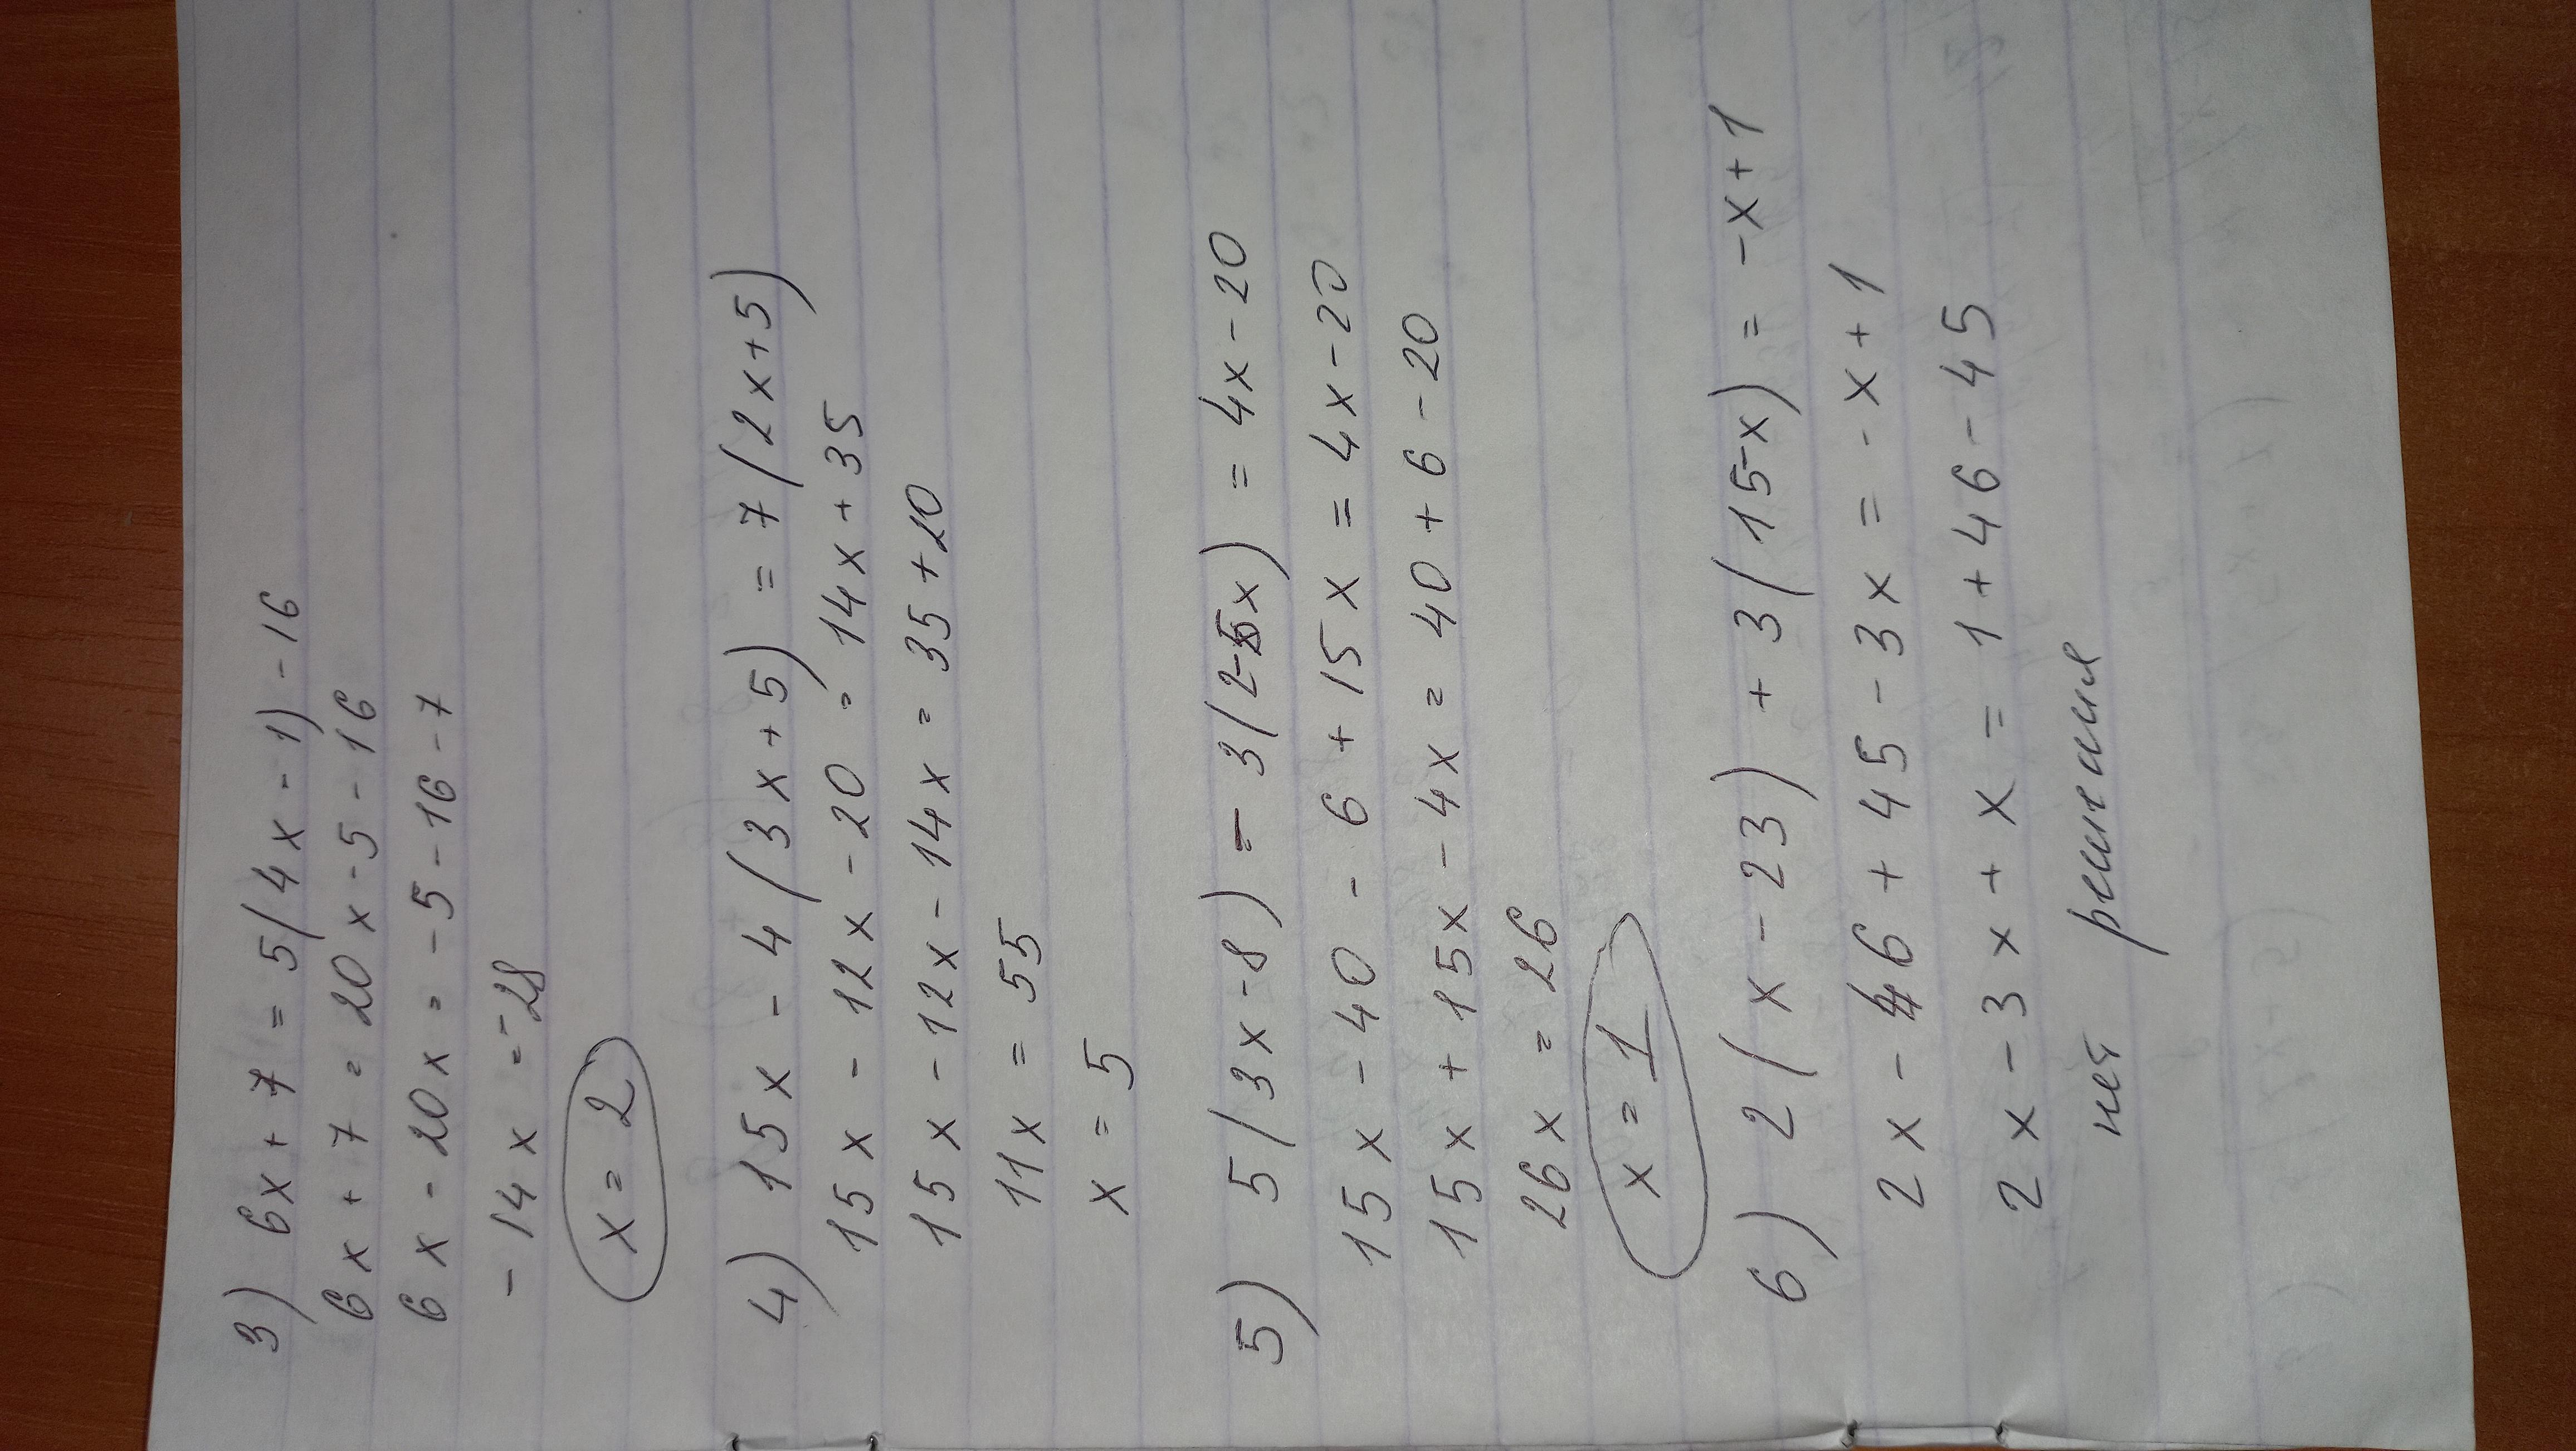 3) 6x + 7 = 5(4x - 1) - 16
6x + 7 = 20x - 5 - 16
6x - 20x = -5 - 16 - 7
-14x = -28
x = 2
4) 15x - 4(3x + 5) = 7(2x + 5)
15x - 12x - 20 = 14x + 35
15x - 12x - 14x = 35 + 20
11x = 55
x = 5
5) 5(3x - 8) - 3(2 - 5x) = 4x - 20
15x - 40 - 6 + 15x = 4x - 20
15x + 15x - 4x = 40 + 6 - 20
26x = 26
x = 1
6) 2(x - 23) + 3(15 - x) = -x + 1
2x - 46 + 45 - 3x = -x + 1
2x - 3x + x = 1 + 46 - 45
нет решения